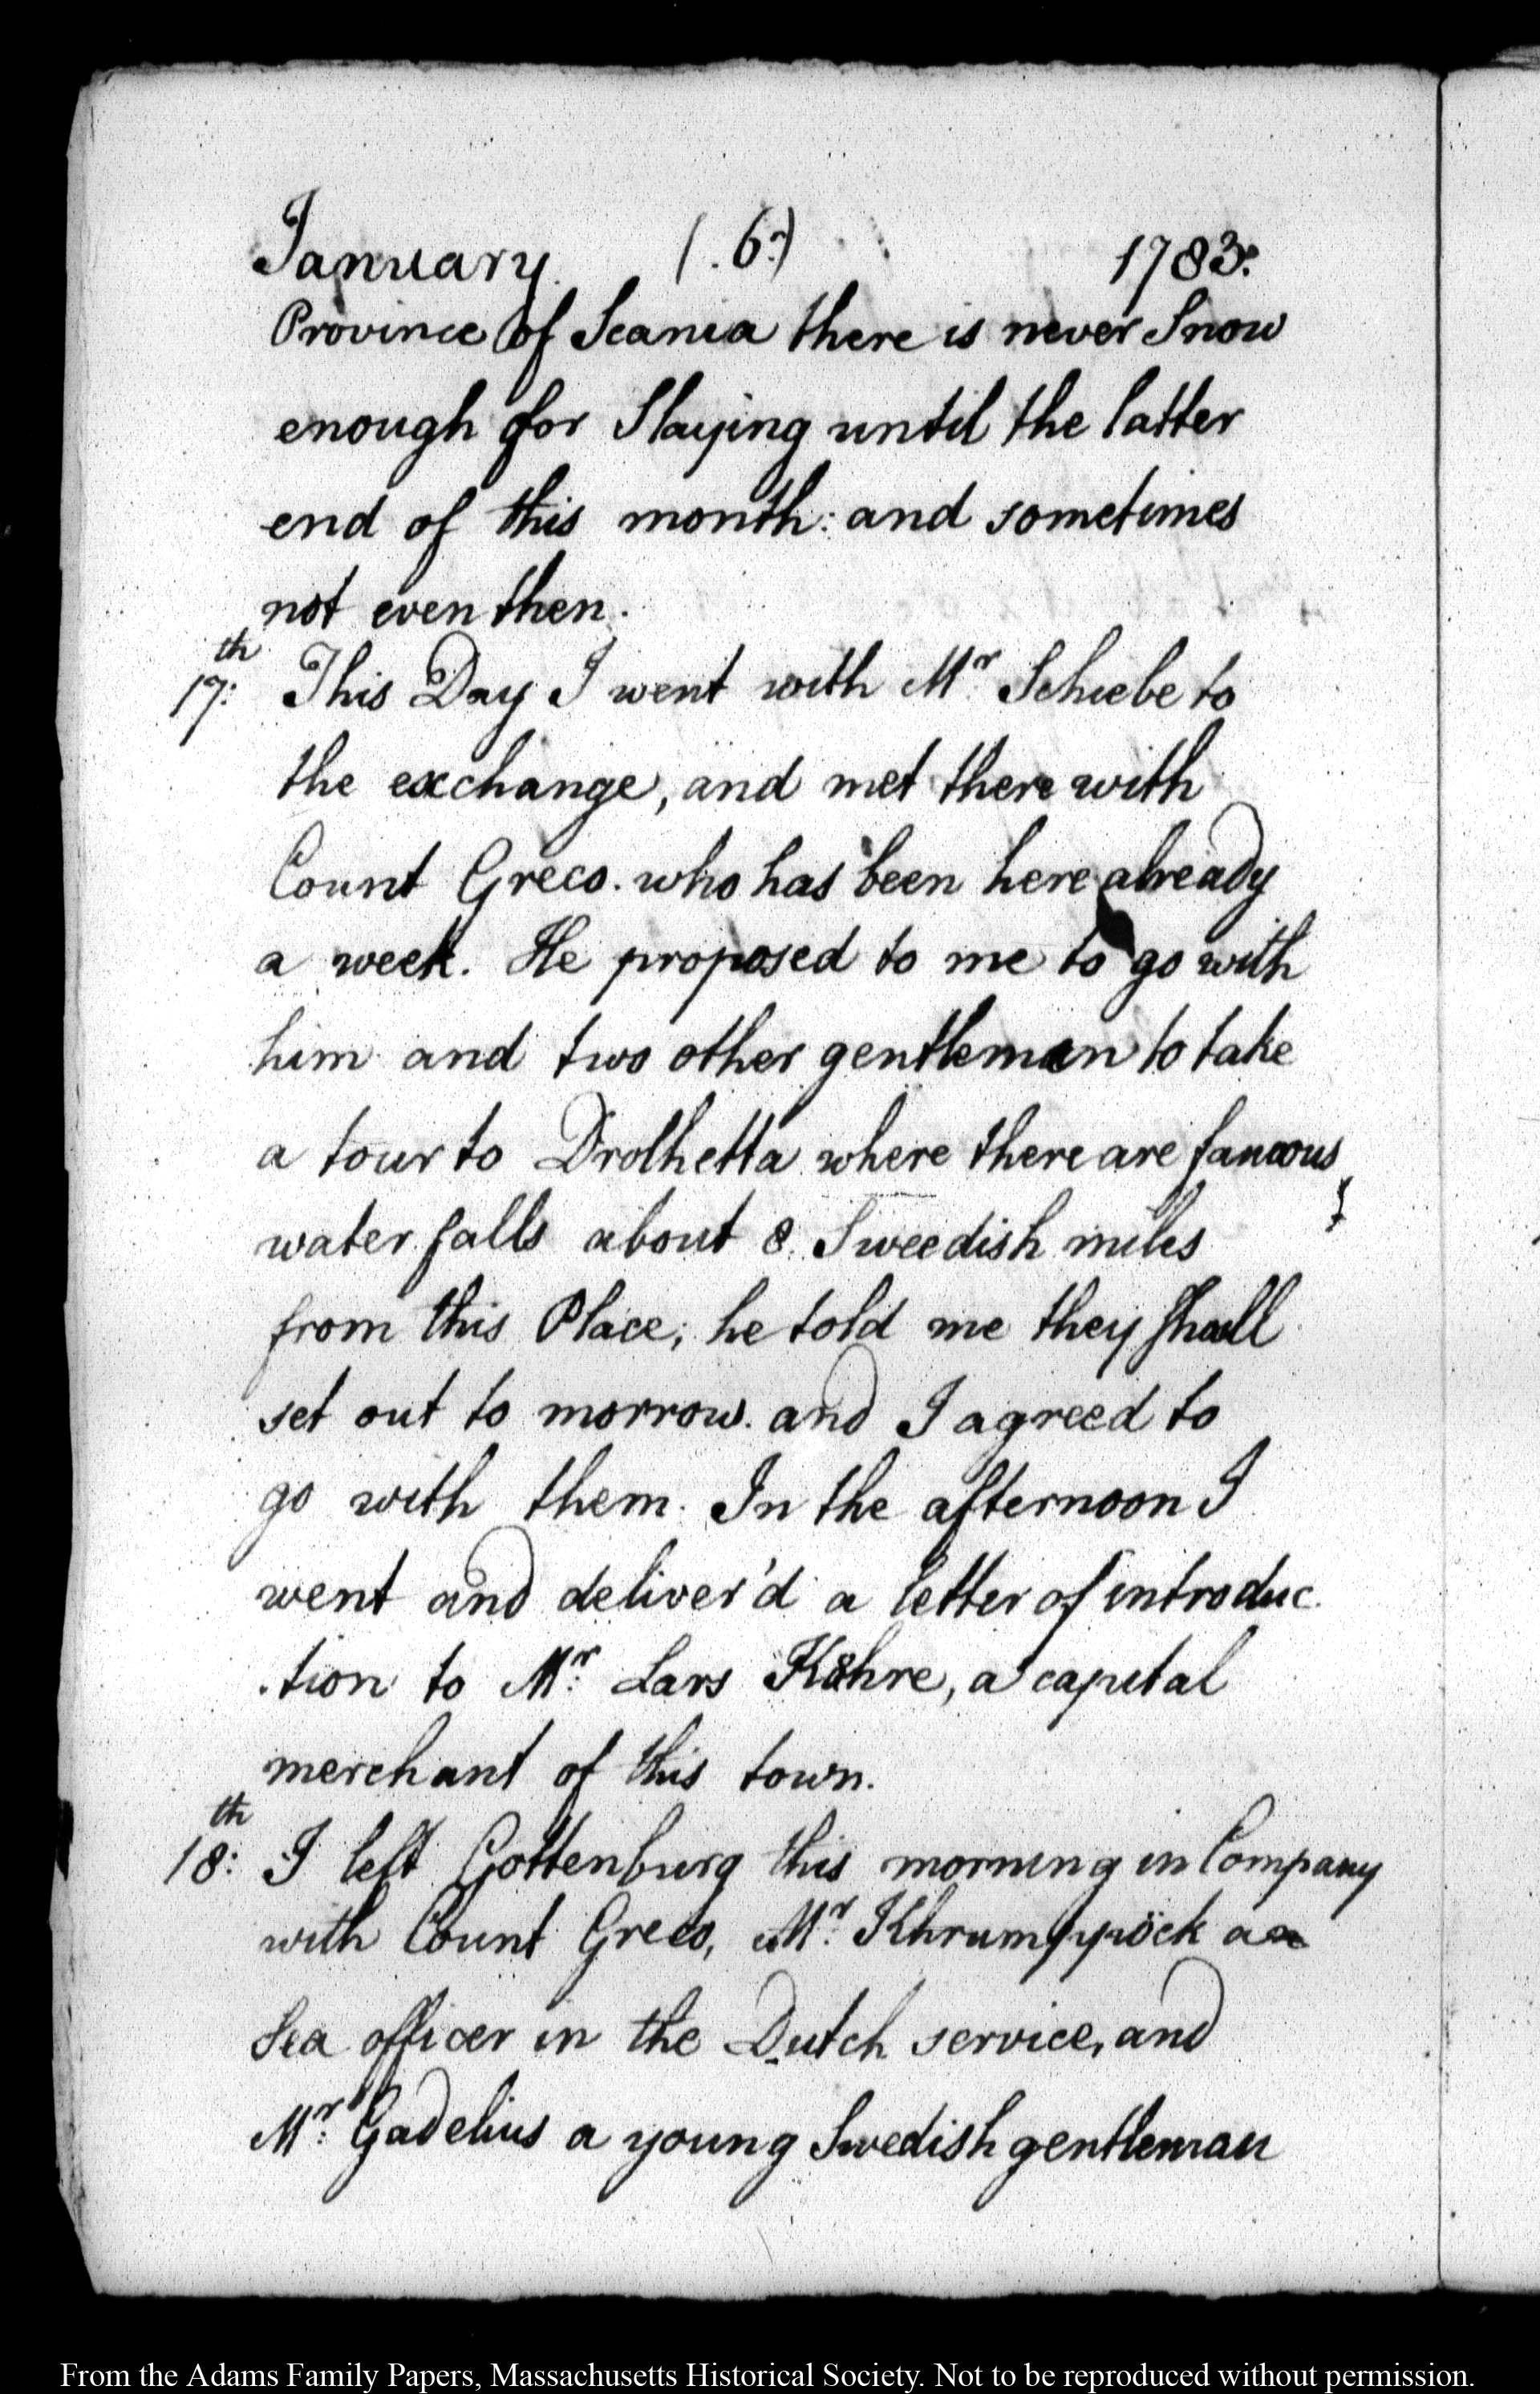 January. (.6:) 1783.
Province of Scania there is never Snow
enough for Slaying until the latter
end of this month: and sometimes
not even then.
17:th This Day I went with Mr: Schiebe to
the exchange, and met there with
Count Greco. who has been here already
a week. He proposed to me to go with
him and two other gentlemen to take
a tour to Drolhetta where there are famous
water falls about 8. Sweedish miles
from this Place; he told me they shall
set out to morrow. and I agreed to
go with them. In the afternoon I
went and deliver'd a letter of introduc
.tion to Mr: Lars Kåhre, a capital
merchant of this town.
18:th I left Gottenburg this morning in Company
with Count Greco, Mr: Khrumppöck a
Sea officer in the Dutch service, and
Mr: Gadelius a young Swedish gentleman
From the Adams Family Papers, Massachusetts Historical Society. Not to be reproduced without permission.